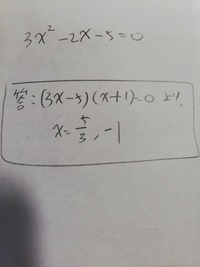 3x² - 2x - 5 = 0
答: (3x-5)(x+1)=0 より,
x = 5/3, -1